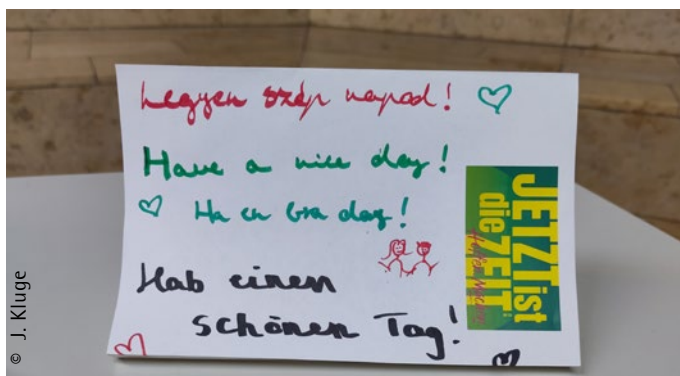 Legyen szép napod!
Have a nice day!
Ha en bra dag!
Hab einen
schönen Tag!
JETZT ist
die ZEIT
© J. Kluge